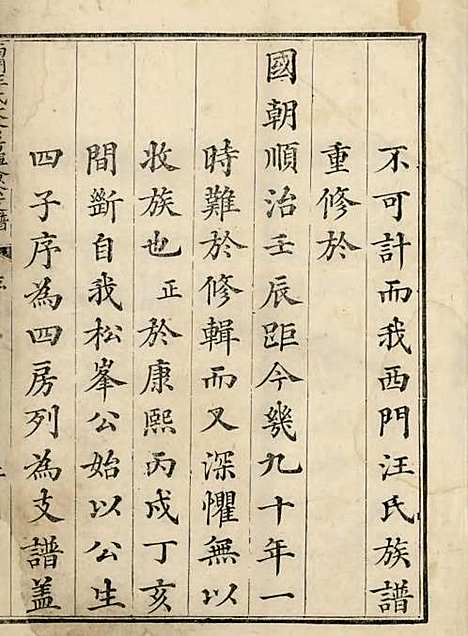 不可計而我西門汪氏族譜
重修於
國朝順治壬辰距今幾九十年一
時難於修輯而又深懼無以
收族也正於康熙丙戌丁亥
間斷自我松峯公始以公生
四子序為四房列為支譜蓋